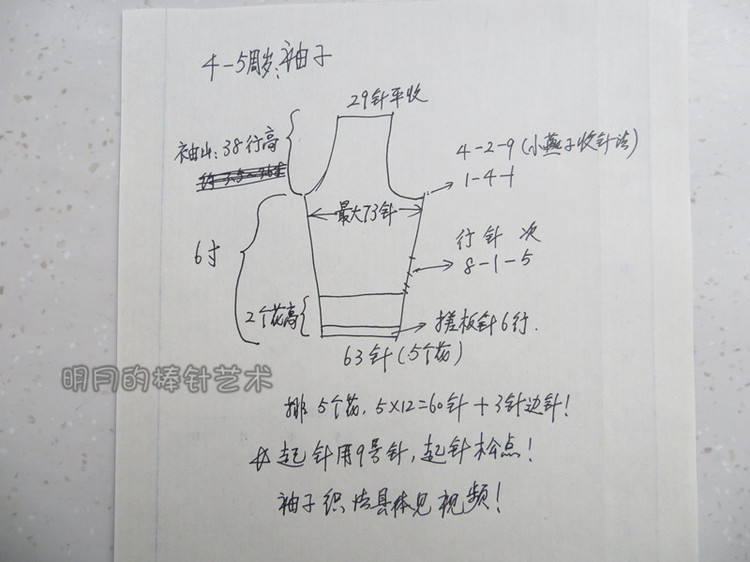 4-5周岁:袖子
29针平收
袖山:38行高
4-2-9(小燕子收针法)
1-4-1
最大73针
6寸
行 针 次
8-1-5
2个花高
搓板针6行.
63针(5个花)
明月的棒针艺术
排5个花, 5×12=60针+3针边针!
起针用9号针,起针松点!
袖子织法具体见视频!